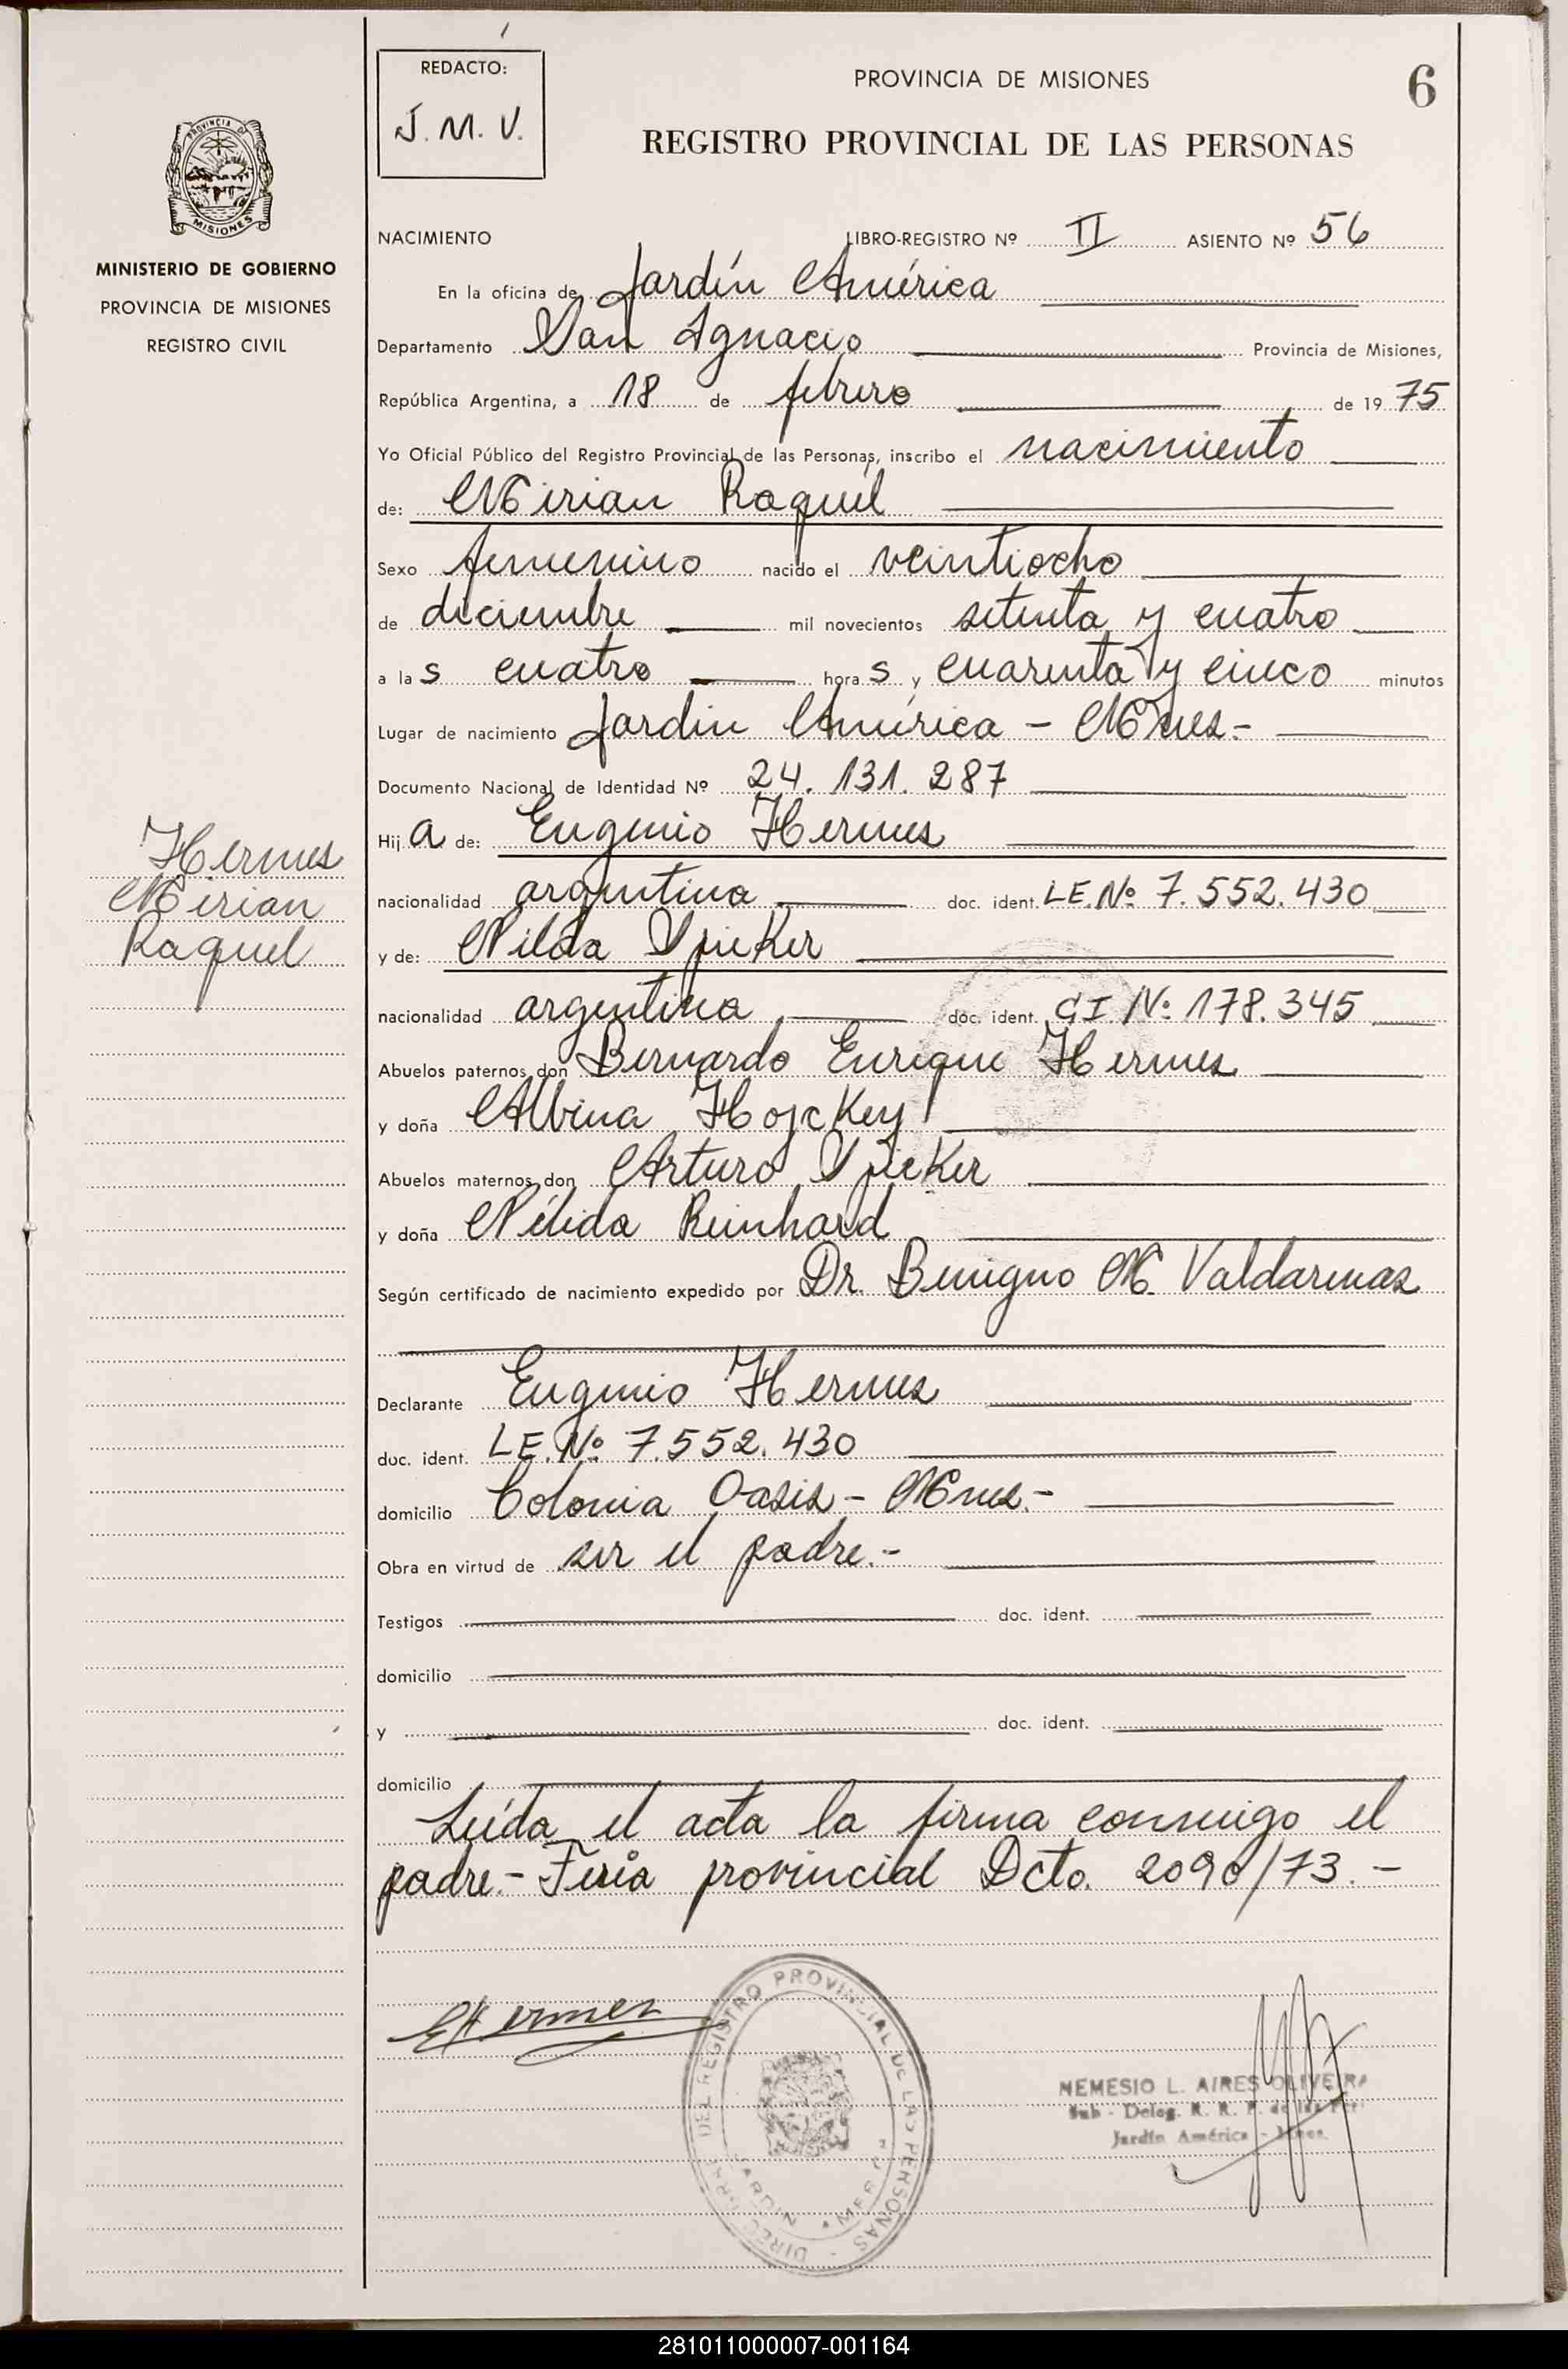 REDACTO:
J. M. V.
PROVINCIA DE MISIONES
6
REGISTRO PROVINCIAL DE LAS PERSONAS
MISIONES
MINISTERIO DE GOBIERNO
PROVINCIA DE MISIONES
REGISTRO CIVIL
NACIMIENTO LIBRO-REGISTRO Nº II ASIENTO Nº 56
En la oficina de Jardín América
Departamento San Ignacio Provincia de Misiones,
República Argentina, a 18 de febrero de 1975
Yo Oficial Público del Registro Provincial de las Personas, inscribo el nacimiento
de: Mirian Raquel
Sexo femenino nacido el veintiocho
de diciembre mil novecientos setenta y cuatro
a las cuatro horas y cuarenta y cinco minutos
Lugar de nacimiento Jardín América - Mnes.-
Documento Nacional de Identidad Nº 24.131.287
Hija de: Eugenio Hermes
Hermes
Mirian
Raquel
nacionalidad argentina doc. ident. L.E.Nº 7.552.430
y de: Nilda Spieker
nacionalidad argentina doc. ident. C.I. Nº 178.345
Abuelos paternos don Bernardo Enrique Hermes
y doña Albina Hojckey
Abuelos maternos don Arturo Spieker
y doña Nélida Reinhard
Según certificado de nacimiento expedido por Dr. Benigno M. Valdarenas
Declarante Eugenio Hermes
doc. ident. L.E. Nº 7.552.430
domicilio Colonia Oasis - Mnes.-
Obra en virtud de ser el padre.-
Testigos doc. ident.
domicilio
y doc. ident.
domicilio
Leída el acta la firma conmigo el
padre.- Feria provincial Dcto. 2090/73.-
EHermes
DEL REGISTRO PROVINCIAL DE LAS PERSONAS
JARDIN AMERICA
NEMESIO L. AIRES OLIVEIRA
Sub - Deleg. R. R. P. de las Per.
Jardín América - Mnes.
281011000007-001164